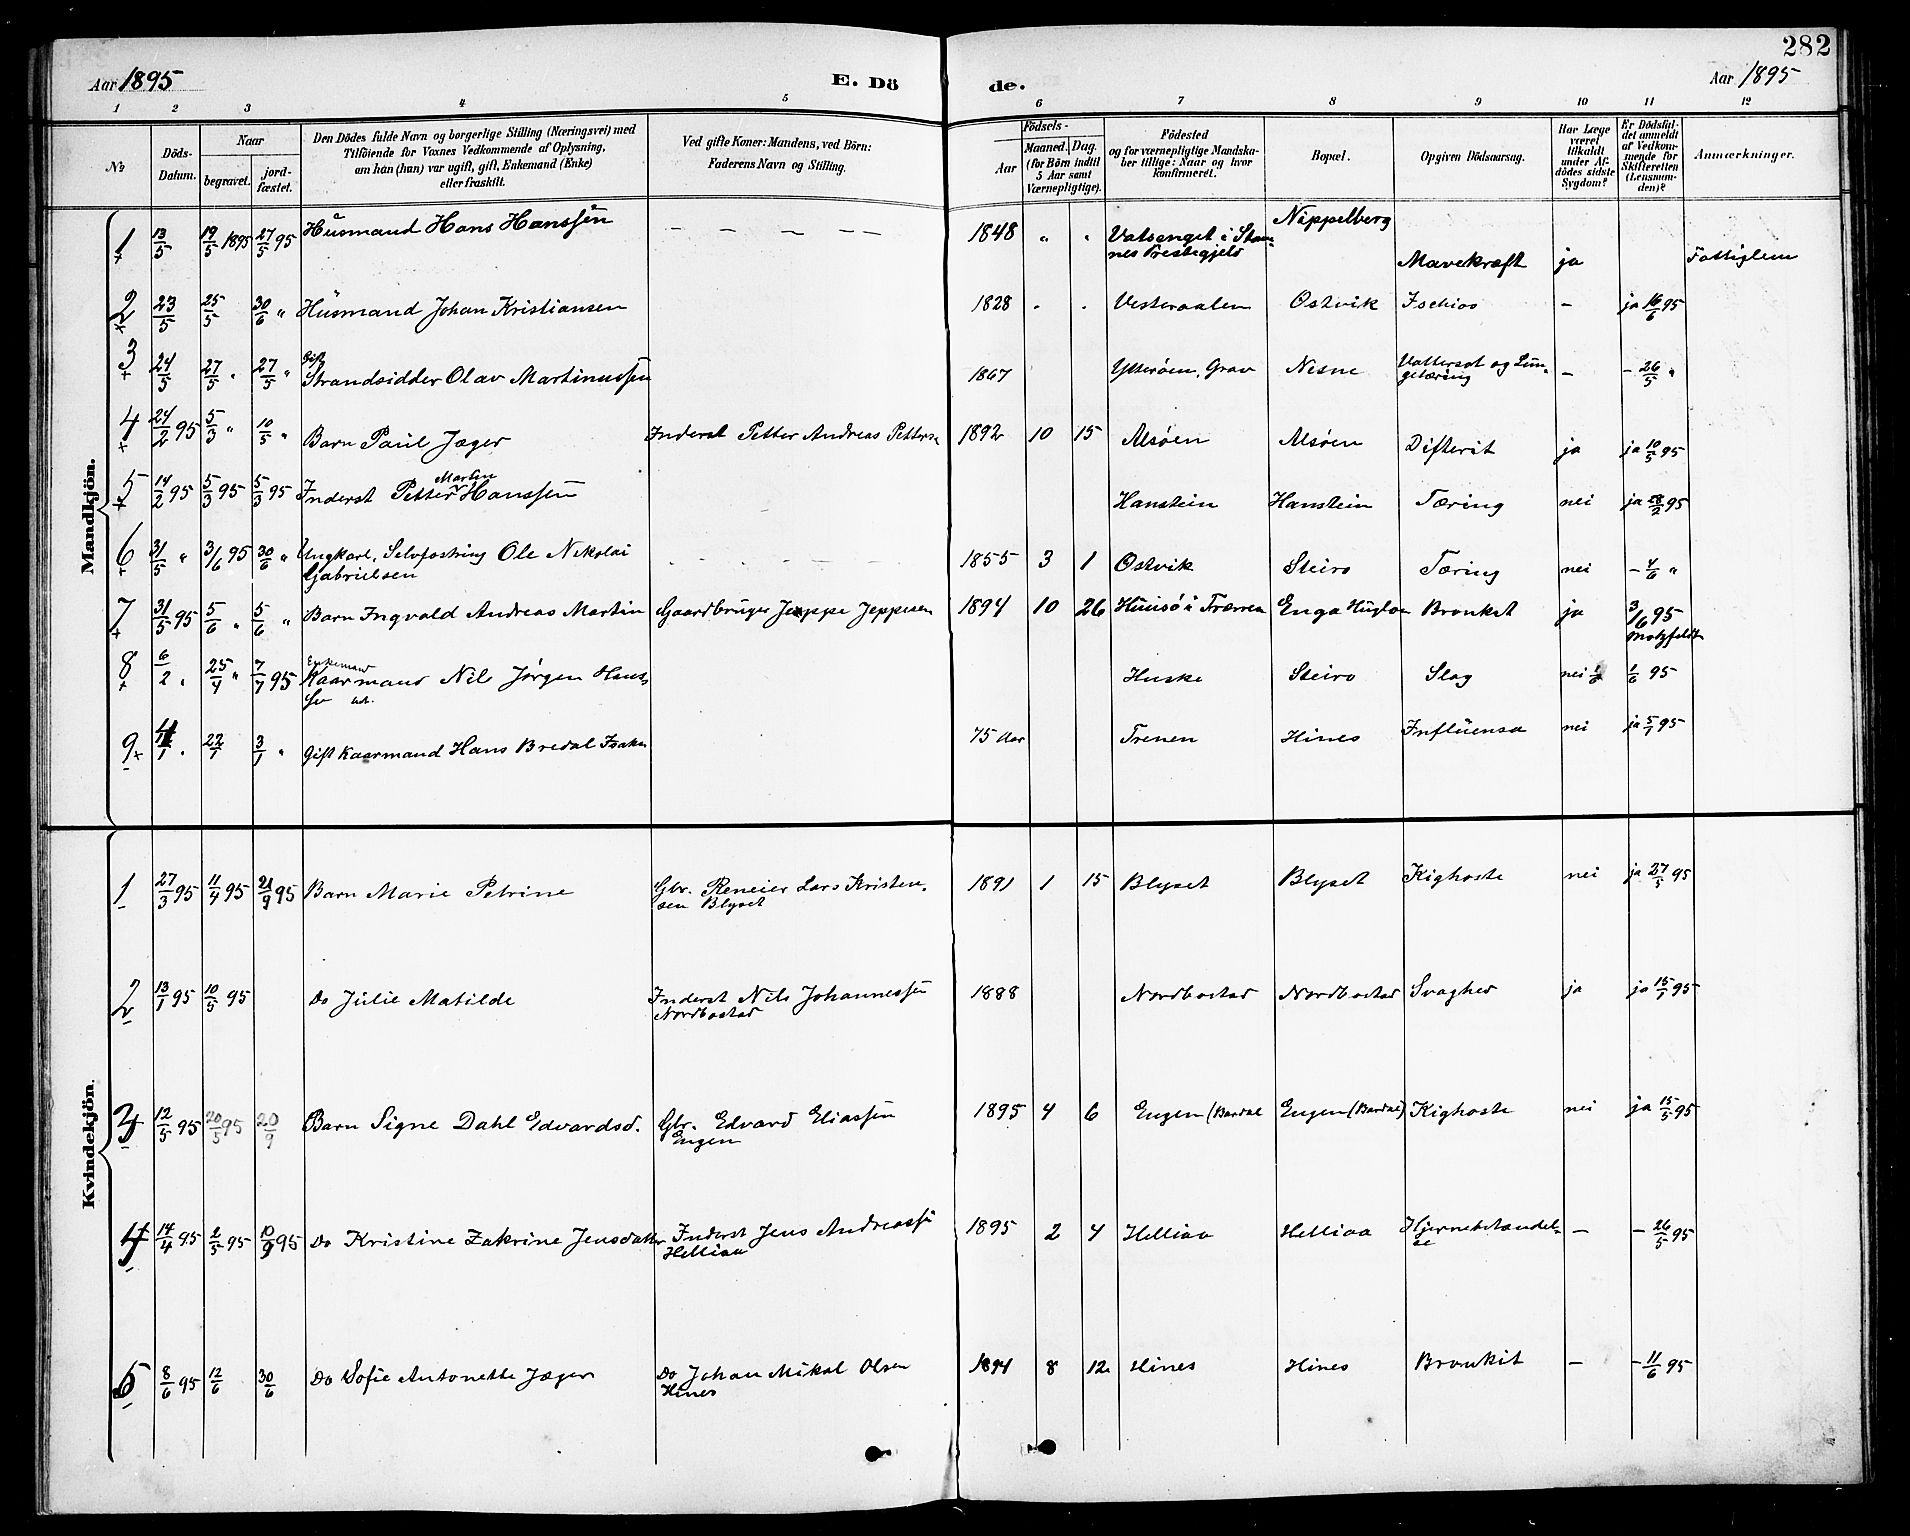 282
Aar 1895 E. Dö de. Aar 1895
1 2 3 4 5 6 7 8 9 10 11 12
No
Döds-Datum.
Naar
begravet.
jordfæstet.
Den Dödes fulde Navn og borgerlige Stilling (Næringsvei) med
Tilföiende for Voxnes Vedkommende af Oplysning,
om han (hun) var ugift, gift, Enkemand (Enke)
eller fraskilt.
Ved gifte Koner: Mandens, ved Börn:
Faderens Navn og Stilling.
Födsels-
Aar
Maaned. Dag.
(for Börn indtil
5 Aar samt
Værnepligtige).
Födested
og for værnepligtige Mandska-
ber tillige: Naar og hvor
konfirmeret.
Bopæl.
Opgiven Dödsaarsag.
Har Læge
været
tilkaldt
under Af-
dödes sidste
Sygdom?
Er Dödsfal-
det anmeldt
af Vedkom-
mende for
Skifteretten
(Lensman-
den)?
Anmærkninger.
Mandkjön.
1 13/5 19/5 1895 27/5 95 Husmand Hans Hanssen — — — — — 1848 " " Vatsenget i Stam-
nes Prestegjeld Nippelberg Mavekræft ja Fattiglem
2 23/5 25/5 30/6 " Husmand Johan Kristiansen 1828 " " Vesteraalen Ostvik Ischias — ja 16/6 95
3 24/5 27/5 " 27/5 " Gift
Strandsidder Olav Martinussen 1867 Ytterøen, Grav Nesne Vattersot og Lun-
getæring — — 26/5 "
4 24/2 95 5/3 " 10/5 " Barn Paul Jæger Inderst Petter Andreas Petters. 1892 10 15 Alsøen Alsøen Difterit ja ja 10/5 95
5 14/2 95 5/3 95 5/3 95 Inderst Petter Martin Hanssen Hanstein Hanstein Tæring nei ja 28/2 95
6 31/5 " 3/6 95 30/6 " Ungkarl, Selvfostring Ole Nikolai
Gabrielsen 1855 3 1 Ostvik Steiro Tæring nei — 4/6 "
7 31/5 95 5/6 " 5/6 " Barn Ingvald Andreas Martin Gaardbruger Jeppe Jeppesen 1894 10 26 Huusø i Træven Enga Huglen Bronkit ja 3/6 95
Motzfeldt
8 6/2 " 25/4 " 7/7 95 Enkemand
Kaarmand Nils Jørgen Hans- Huske Steiro Slag nei 1/6 95
9 4/1 " 22/1 3/1 " Gift Kaarmand Hans Bredal Isaks. 75 Aar Trenen Hines Influensa nei ja 5/1 95
Kvindekjön.
1 27/3 95 11/4 95 21/9 95 Barn Marie Petrine Gbr. Reneier Lars Kristen-
sen Blyset 1891 1 15 Blyset Blyset Kighoste nei ja 27/5 95
2 13/1 95 10/5 95 Do Julie Matilde Inderst Nils Johannessen
Nordbostad 1888 Nordbostad Nordbostad Svaghed ja ja 15/1 95
3 12/5 95 20/5 95 20/9 Barn Signe Dahl Edvardsd. Gbr. Edvard Eliassen
Engen 1895 4 6 Engen (Bardal Engen (Bardal) Kighoste nei ja 15/5 95
4 14/4 95 2/5 95 10/9 95 Do Kristine Zakrine Jensdatter Inderst Jens Andreassen
Helliaa 1895 2 4 Helliaa Helliaa Hjernebetændel-
se — — 26/5 95
5 8/6 95 12/6 30/6 Do Sofie Antonette Jæger Do Johan Mikal Olsen
Hines 1894 8 12 Hines Hines Bronkit — — 11/6 95